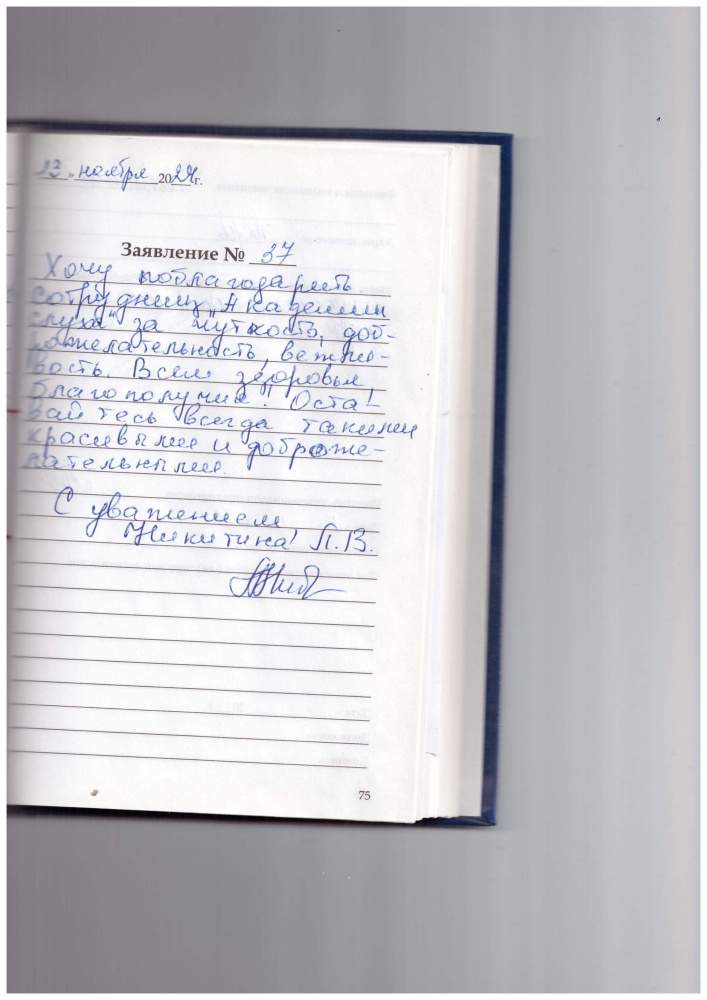 13 ноября 2024 г.
Заявление № 37
Хочу поблагодарить
сотрудниц "Академии
слуха" за чуткость, доб-
рожелательность, вежли-
вость. Всем здоровья,
благополучия! Оста-
вайтесь всегда такими
красивыми и доброже-
лательными.
С уважением,
Никитина Л.В.
75